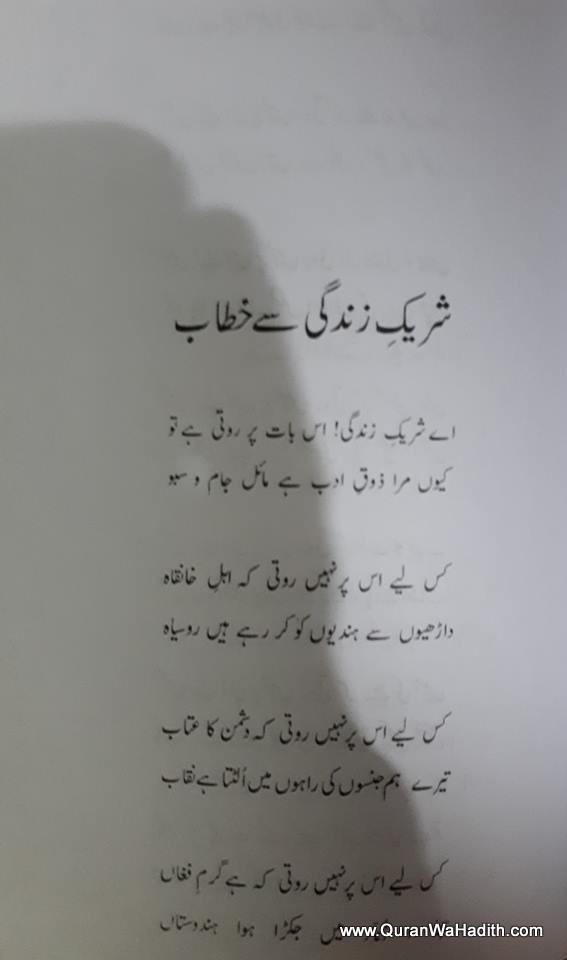 شریکِ زندگی سے خطاب
اے شریکِ زندگی! اس بات پر روتی ہے تو
کیوں مرا ذوقِ ادب ہے مائل جام و سبو
کس لیے اس پر نہیں روتی کہ اہلِ خانقاہ
داڑھیوں سے ہندیوں کو کر رہے ہیں روسیاہ
کس لیے اس پر نہیں روتی کہ دشمن کا عتاب
تیرے ہم جنسوں کی راہوں میں اُلٹتا ہے نقاب
کس لیے اس پر نہیں روتی کہ ہے گرمِ فغاں
میں جکڑا ہوا ہندوستاں
www.QuranWaHadith.com